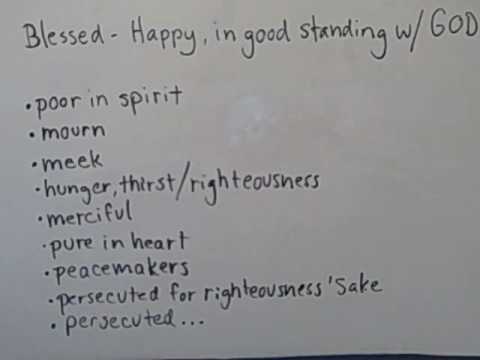 Blessed - Happy, in good standing w/ GOD
• poor in spirit
• mourn
• meek
• hunger, thirst/righteousness
• merciful
• pure in heart
• peacemakers
• persecuted for righteousness' Sake
• persecuted...